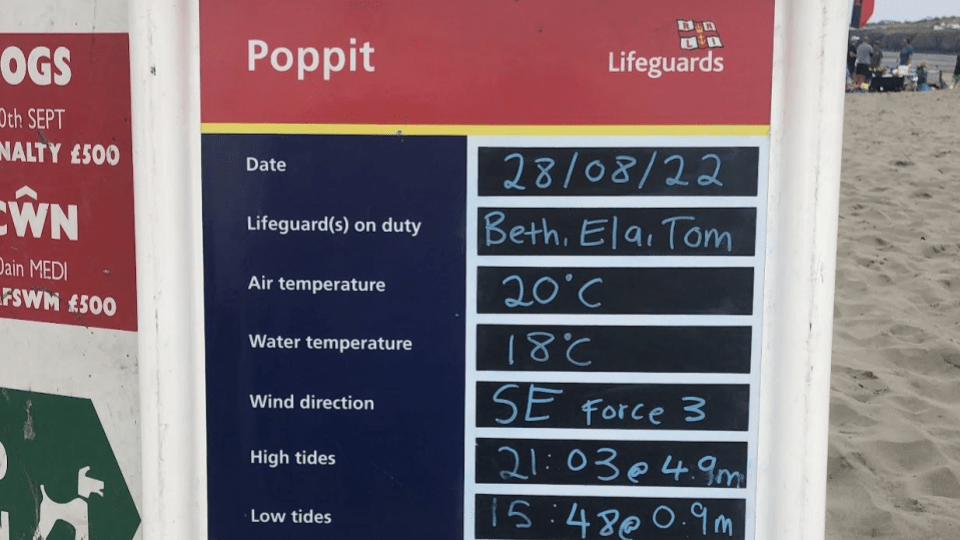 OGS
0th SEPT
NALTY £500
CŴN
0ain MEDI
AFSWM £500
Poppit
RNLI
Lifeguards
Date 28/08/22
Lifeguard(s) on duty Beth, Ela, Tom
Air temperature 20°C
Water temperature 18°C
Wind direction SE Force 3
High tides 21:03@ 4.9m
Low tides 15:48@ 0.9m